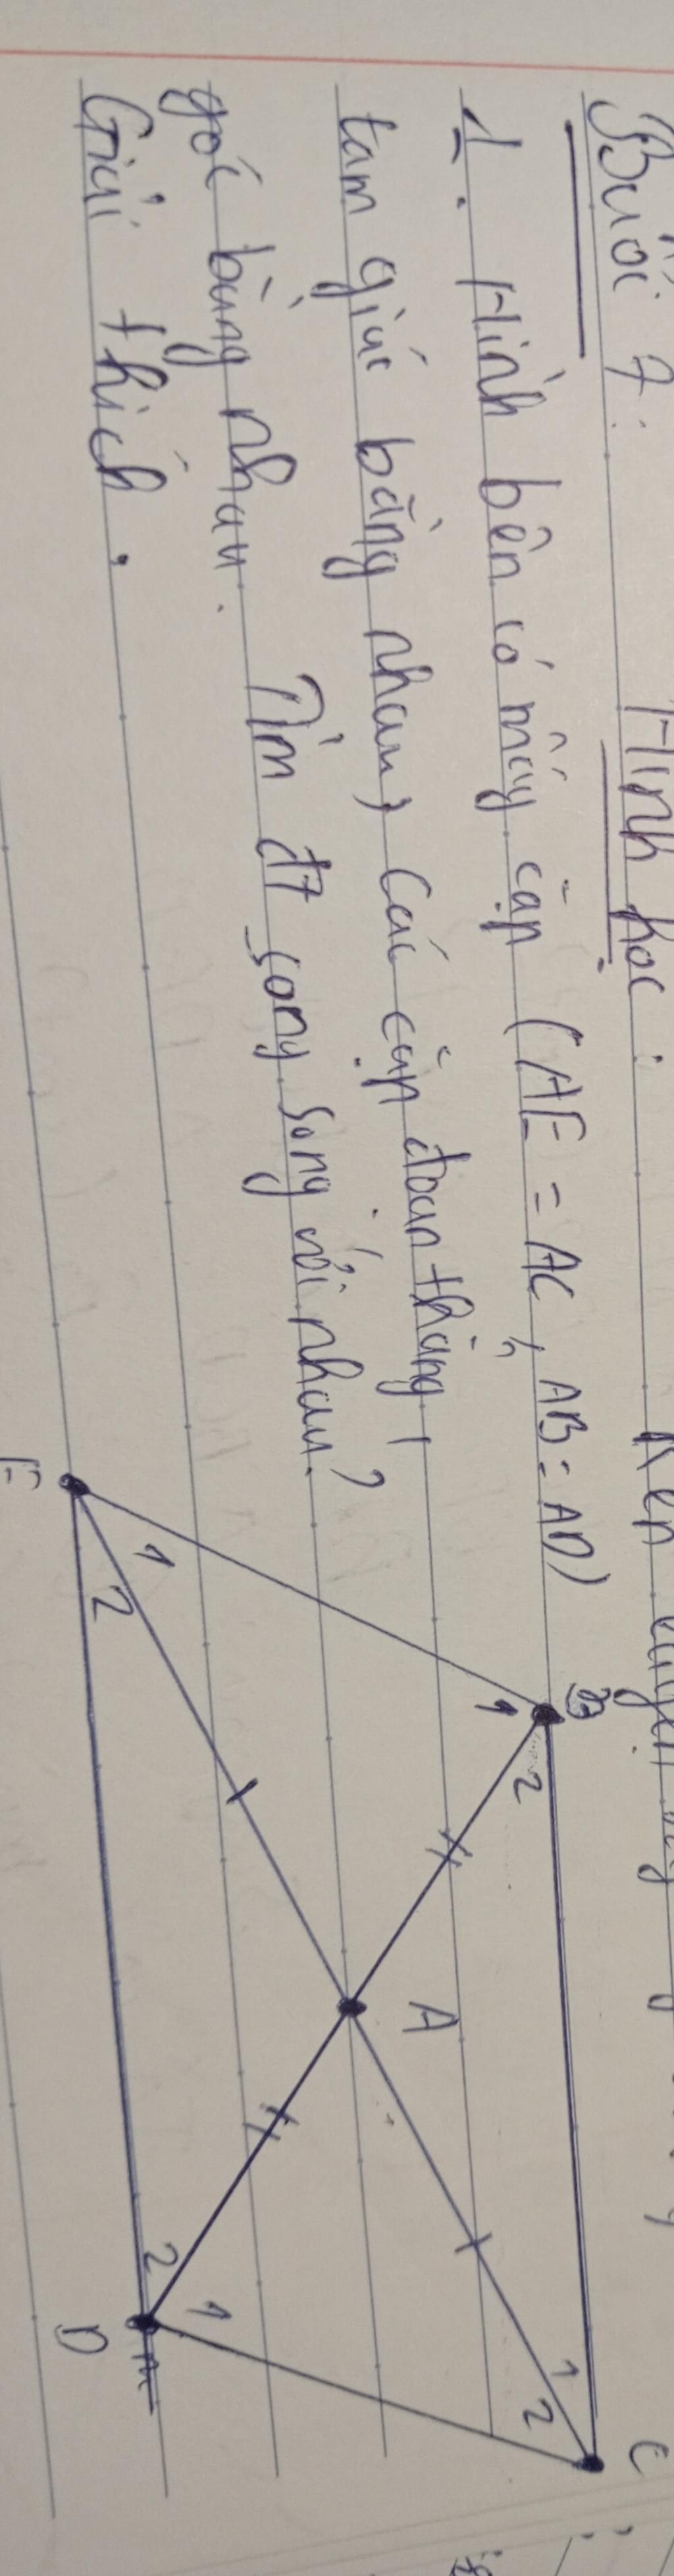 Buổi 7: Hình học: Rèn luyện
1. Hình bên có mấy cặp (AE = AC, AB = AD)
tam giác bằng nhau, các cặp đoạn thẳng,
góc bằng nhau. Tìm đt song song với nhau?
Giải thích.
B
C
1
2
1
2
A
1
2
1
2
E
D